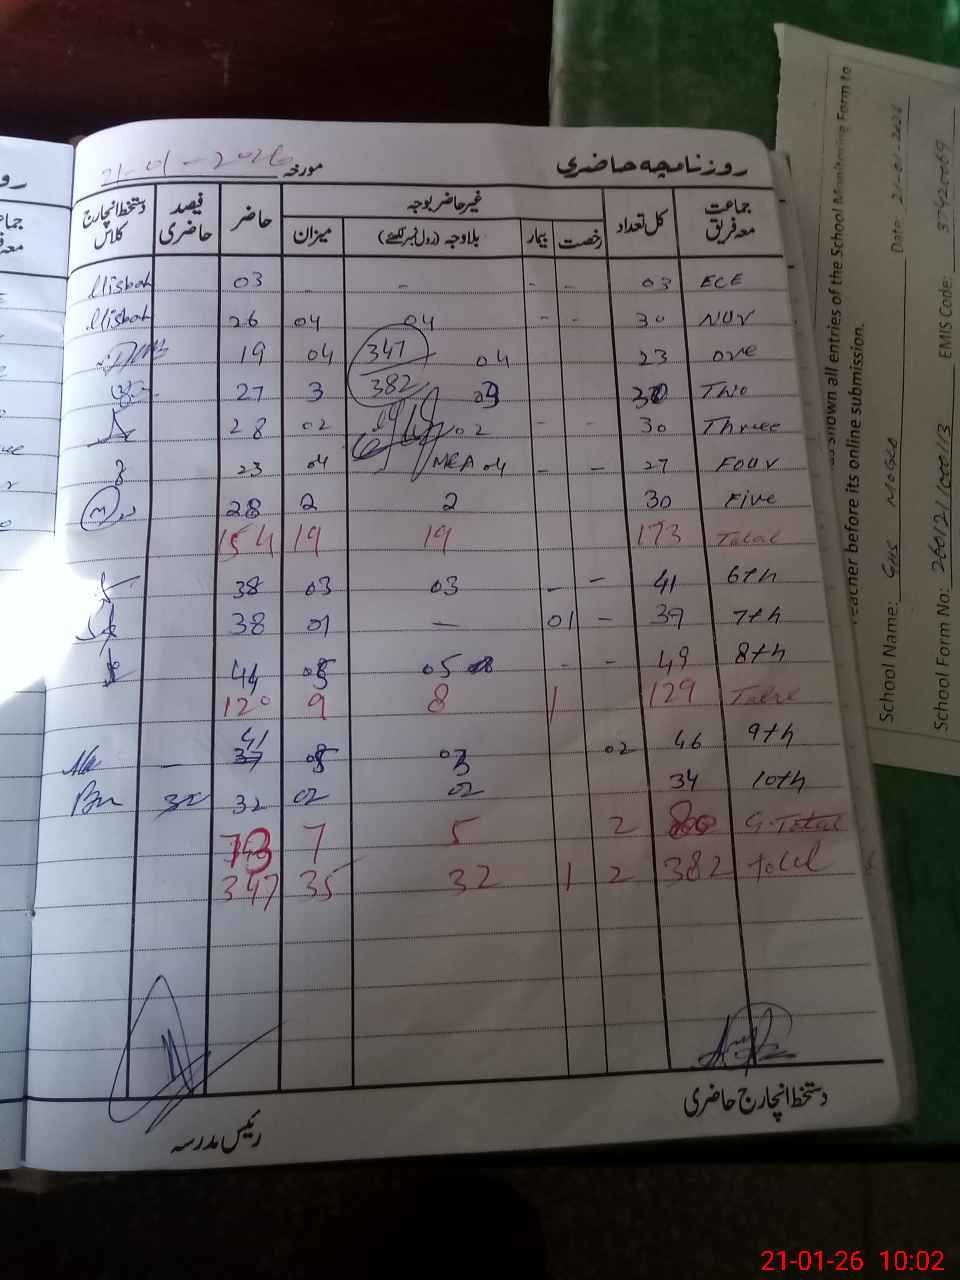 روزنامچہ حاضری
مورخہ 21-01-2026
جماعت معہ فریق کل تعداد غیر حاضر بوجہ حاضر فیصد حاضری دستخط انچارج کلاس
رخصت بیمار بلاوجہ (رول نمبر لکھئے) میزان
ECE 03 - - - - 03 Misbah
NUR 30 - - 04 04 26 Misbah
one 23 04 347 04 19
Two 30 03 382 3 27
Three 30 - - 02 02 28
Four 27 - - MEA 04 04 23
Five 30 2 2 28
Total 173 19 19 154
6th 41 - - 03 03 38
7th 39 - 01 - 01 38
8th 49 - - 05 05 44
Total 129 1 8 9 120
9th 46 02 03 05 41
10th 34 02 02 32 32
G.Total 80 2 5 7 73
Total 382 2 1 32 35 347
دستخط انچارج حاضری
رئیس مدرسہ
as shown all entries of the School Monitoring Form to
teacher before its online submission.
School Name: GHS MOGLA Date: 21-01-2026
School Form No: EMIS Code: 37420069
21-01-26 10:02